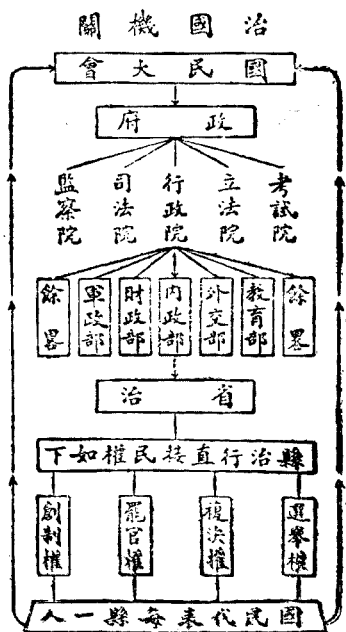 治國機關
國民大會
政府
考試院
立法院
行政院
司法院
監察院
餘畧
教育部
外交部
內政部
財政部
軍政部
餘畧
省治
縣治行直接民權如下
選舉權
複决權
罷官權
創制權
國民代表每縣一人